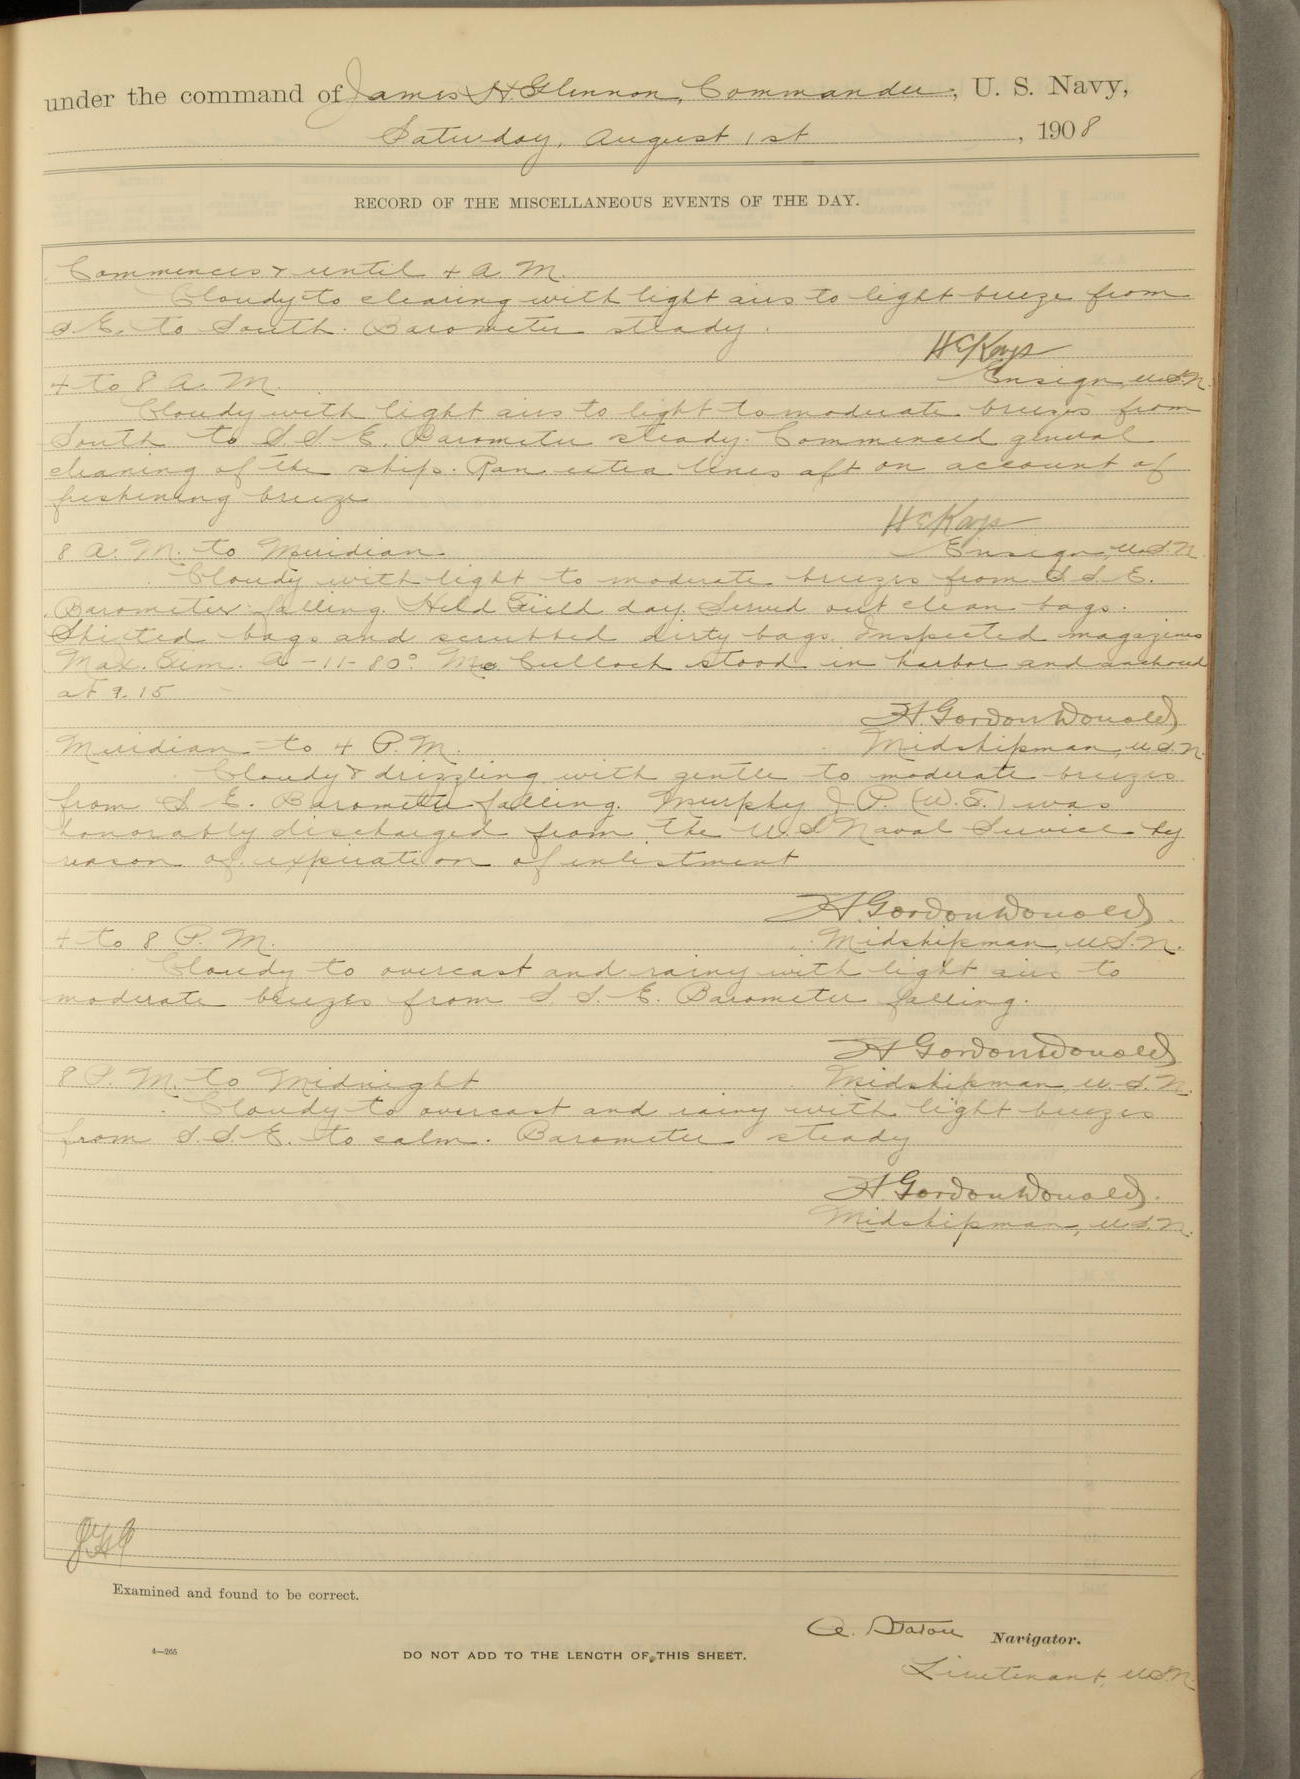 under the command of James H. Glennon, Commander, U. S. Navy,
Saturday, August 1st, 1908
RECORD OF THE MISCELLANEOUS EVENTS OF THE DAY.
Commences & until 4 A. M.
Cloudy to clearing with light airs to light breeze from
S. E. to South. Barometer steady.
H C Kays
4 to 8 A. M. Ensign, U.S.N.
Cloudy with light airs to light to moderate breezes from
South to S. S. E. Barometer steady. Commenced general
cleaning of the ship. Ran extra lines aft on account of
freshening breeze
H C Kays
8 A. M. to Meridian Ensign, U.S.N.
Cloudy with light to moderate breezes from S. S. E.
Barometer falling. Held Field day. Served out clean bags.
Shifted bags and scrubbed dirty bags. Inspected magazines
Max. Tem. A-11-80° Mc Culloch stood in harbor and anchored
at 9.15
H. Gordon Donald
Meridian to 4 P. M. Midshipman, U.S.N.
Cloudy & drizzling with gentle to moderate breezes
from S. E. Barometer falling. Murphy J. P. (W.T.) was
honorably discharged from the U.S Naval Service by
reason of expiration of enlistment
H. Gordon Donald.
4 to 8 P. M. Midshipman, U.S.N.
Cloudy to overcast and rainy with light airs to
moderate breezes from S. S. E. Barometer falling.
H Gordon Donald
8 P. M. to Midnight Midshipman, U.S.N.
Cloudy to overcast and rainy with light breezes
from S. S. E. to calm. Barometer steady
H. Gordon Donald.
Midshipman, U.S.N.
Examined and found to be correct.
A. Staton Navigator.
4—265 DO NOT ADD TO THE LENGTH OF THIS SHEET.
Lieutenant, U.S.N.